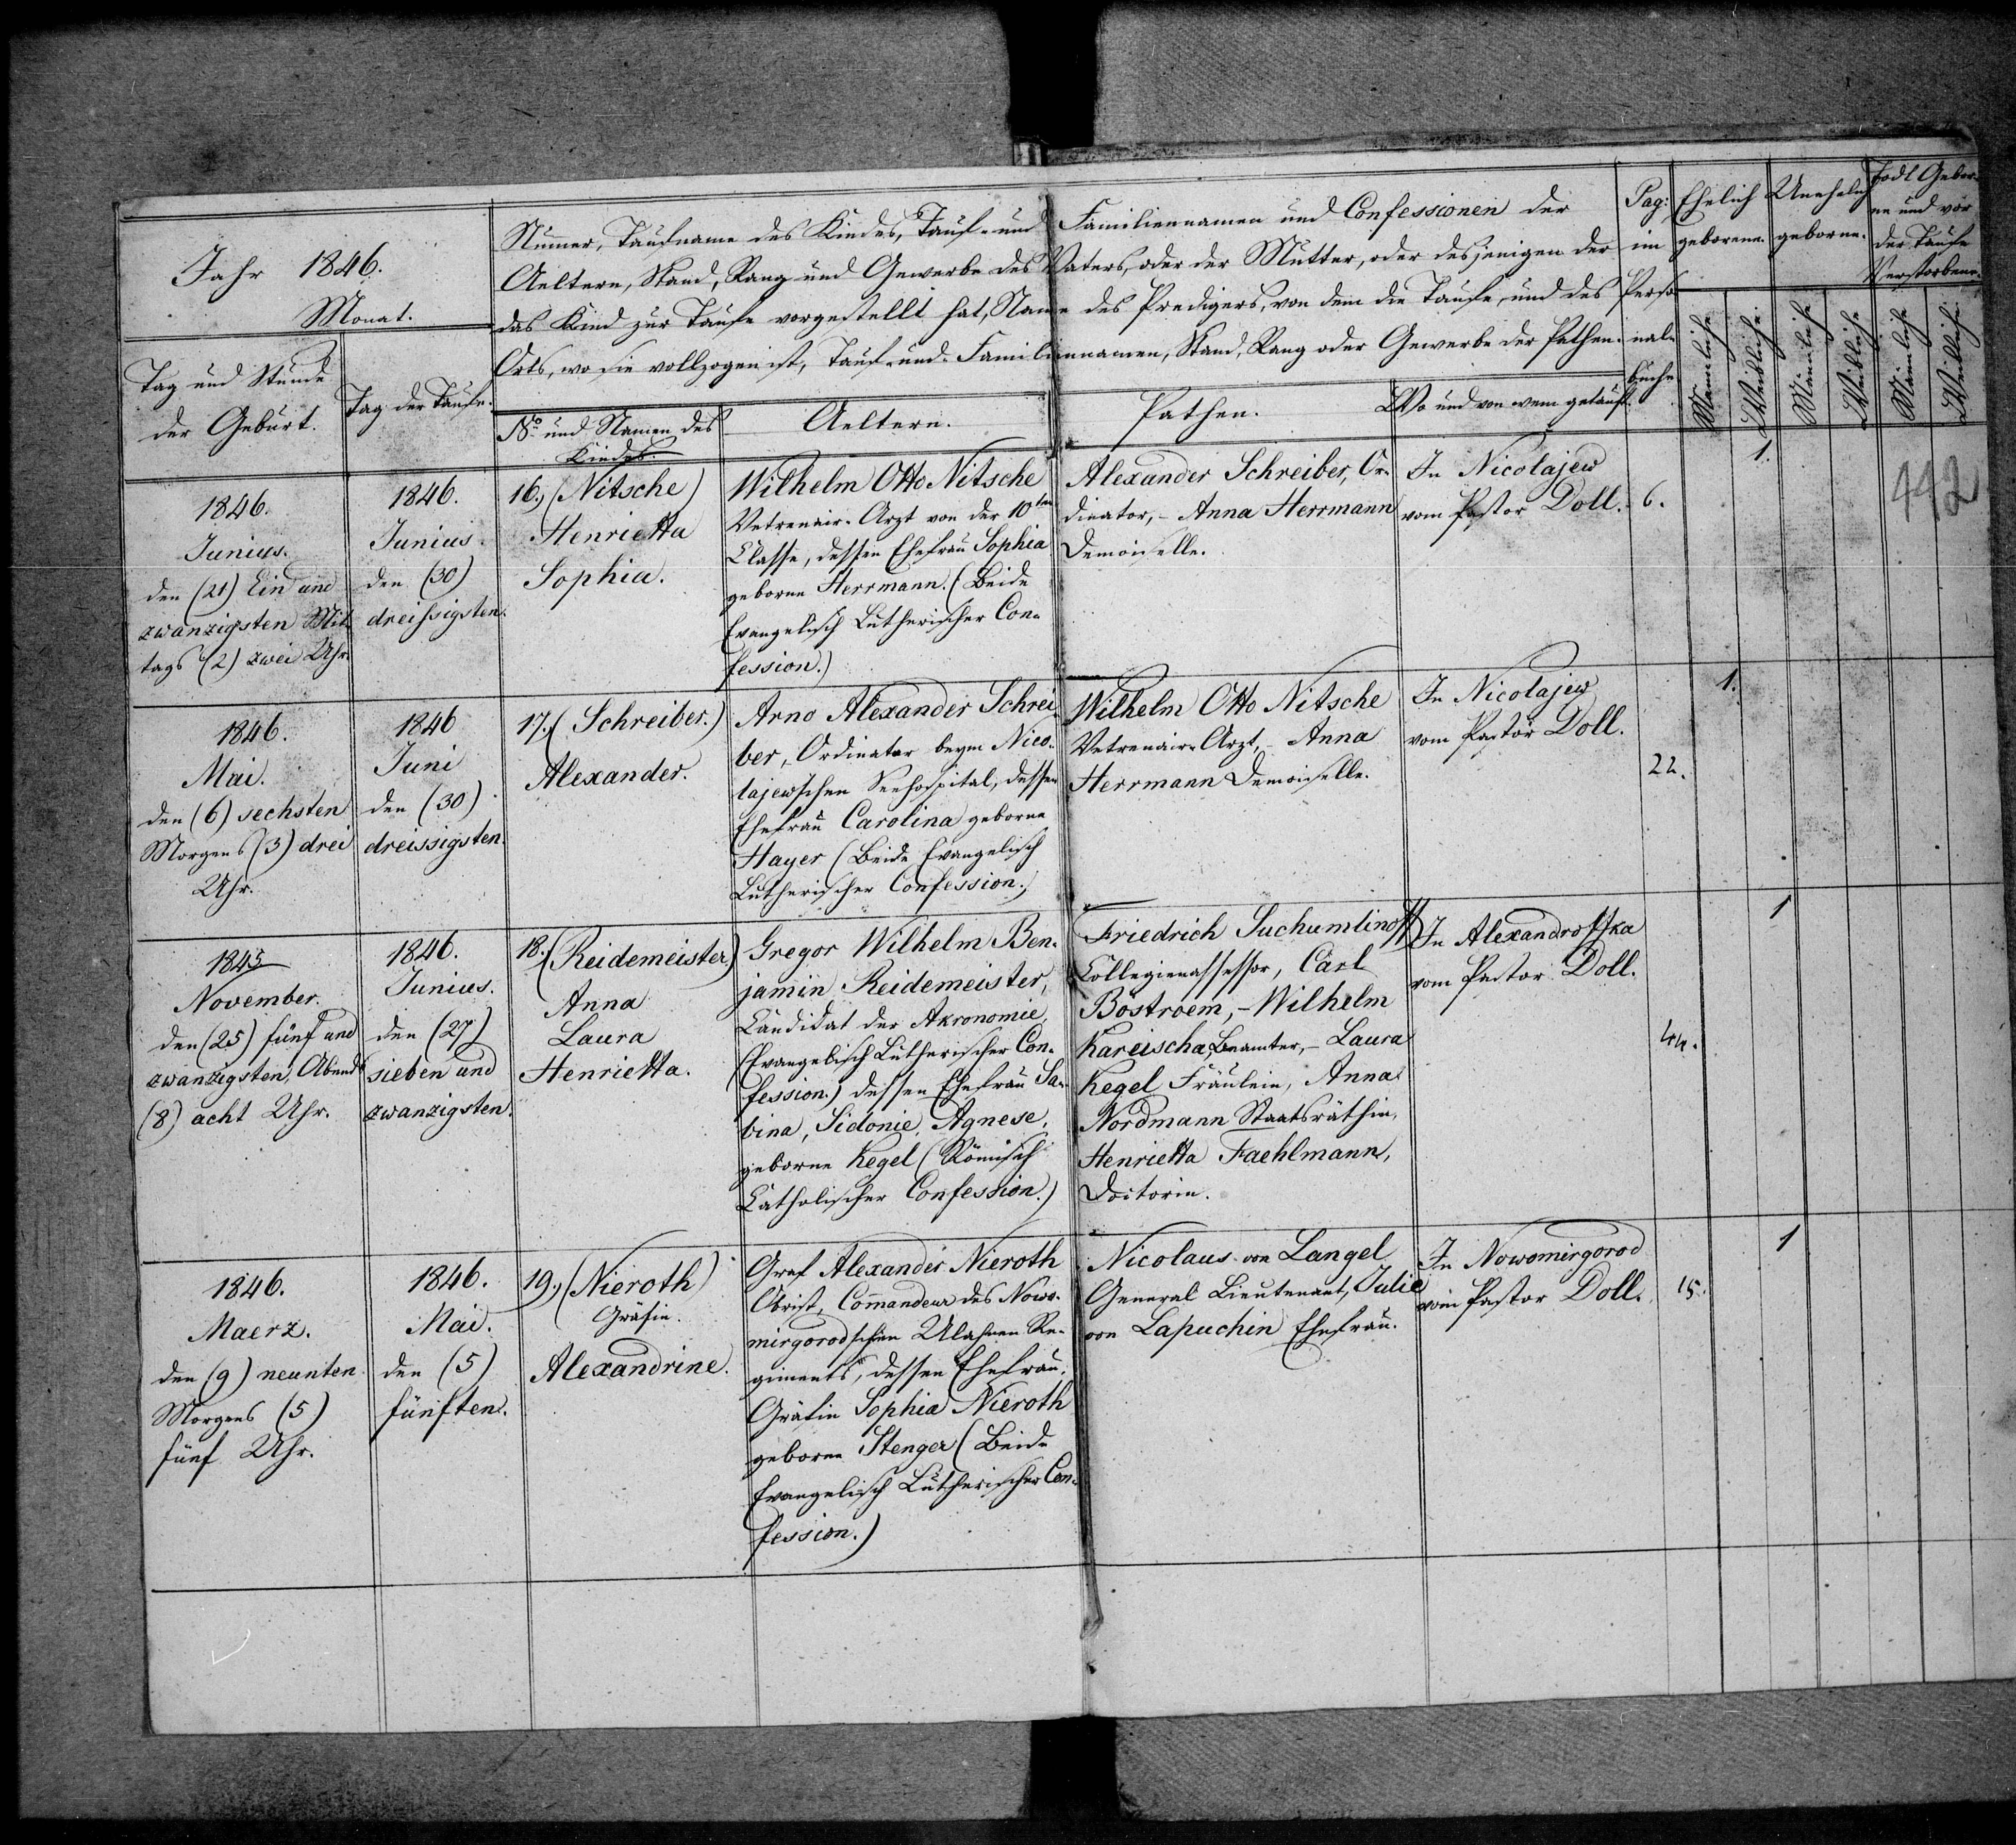 Jahr 1846.
Monat.
Tag und Stunde
der Geburt.
Tag der Taufe.
Numer, Taufname des Kindes, Tauf- und Familiennamen und Confessionen der
Aeltern, Stand, Rang und Gewerbe des Vaters, oder der Mutter, oder desjenigen der
das Kind zur Taufe vorgestellt hat, Name des Predigers, von dem die Taufe, und des
Orts, wo sie vollzogen ist, Tauf- und Familiennamen, Stand, Rang oder Gewerbe der Pathen.
No und Namen des
Kindes.
Aeltern.
Pathen.
Wo und von wem getauft.
Pag:
im
Perso
nal-
buche
Ehelich
geborene.
Unehelich
geborne.
Todt Gebor-
ne und vor
der Taufe
Verstorbene.
Mänliche
Weibliche
Mänliche
Weibliche
Mänliche
Weibliche
1846.
Junius.
den (21) Ein und
zwanzigsten Mit
tags (2) zwei Uhr.
1846.
Junius.
den (30)
dreissigsten.
16.) (Nitsche)
Henrietta
Sophia.
Wilhelm Otto Nitsche
Vetrenair-Arzt von der 10ten
Classe, dessen Ehefrau Sophia
geborne Herrmann. (Beide
Evangelisch Lutherischer Con-
fession.)
Alexander Schreiber, Or-
dinator, - Anna Herrmann
Demoiselle.
In Nicolajew
vom Pastor Doll.
6.
1.
442
1846.
Mai.
den (6) sechsten
Morgens (3) drei
Uhr.
1846
Juni
den (30)
dreissigsten.
17.( Schreiber.)
Alexander.
Arno Alexander Schrei-
ber, Ordinator beym Nico-
lajewschen Seehospital, dessen
Ehefrau Carolina geborne
Hayer (Beide Evangelisch
Lutherischer Confession.)
Wilhelm Otto Nitsche
Vetrenair-Arzt, - Anna
Herrmann Demoiselle.
In Nicolajew
vom Pastor Doll.
22.
1.
1845
November.
den (25) fünf und
zwanzigsten, Abends
(8) acht Uhr.
1846.
Junius.
den (27)
sieben und
zwanzigsten.
18. (Reidemeister.)
Anna
Laura
Henrietta.
Gregor Wilhelm Ben-
jamin Reidemeister,
Candidat der Akronomie,
(Evangelisch Lutherischer Con-
fession.) dessen Ehefrau Sa-
bina, Sidonie, Agnese,
geborne Kegel (Römisch
Catholischer Confession.)
Friedrich Suchumlinoff
Collegienassessor, Carl
Bostroem, - Wilhelm
Kareischa, Beamter, - Laura
Kegel Fräulein, Anna
Nordmann Staatsräthin,
Henrietta Faehlmann,
Doctorin.
In Alexandroffka
vom Pastor Doll.
44.
1
1846.
Maerz.
den (9) neunten
Morgens (5)
fünf Uhr.
1846.
Mai.
den (5)
fünften.
19.) (Nieroth)
Gräfin.
Alexandrine.
Graf Alexander Nieroth
Obrist, Commandeur des Nowo-
mirgorodschen Ulahnen Re-
giments, dessen Ehefrau,
Gräfin Sophia Nieroth
geborne Stenger (Beide
Evangelisch Lutherischer Con-
fession.)
Nicolaus von Langel
General Lieutenant, Julie
von Lapuchin Ehefrau.
In Nowomirgorod
vom Pastor Doll.
15.
1